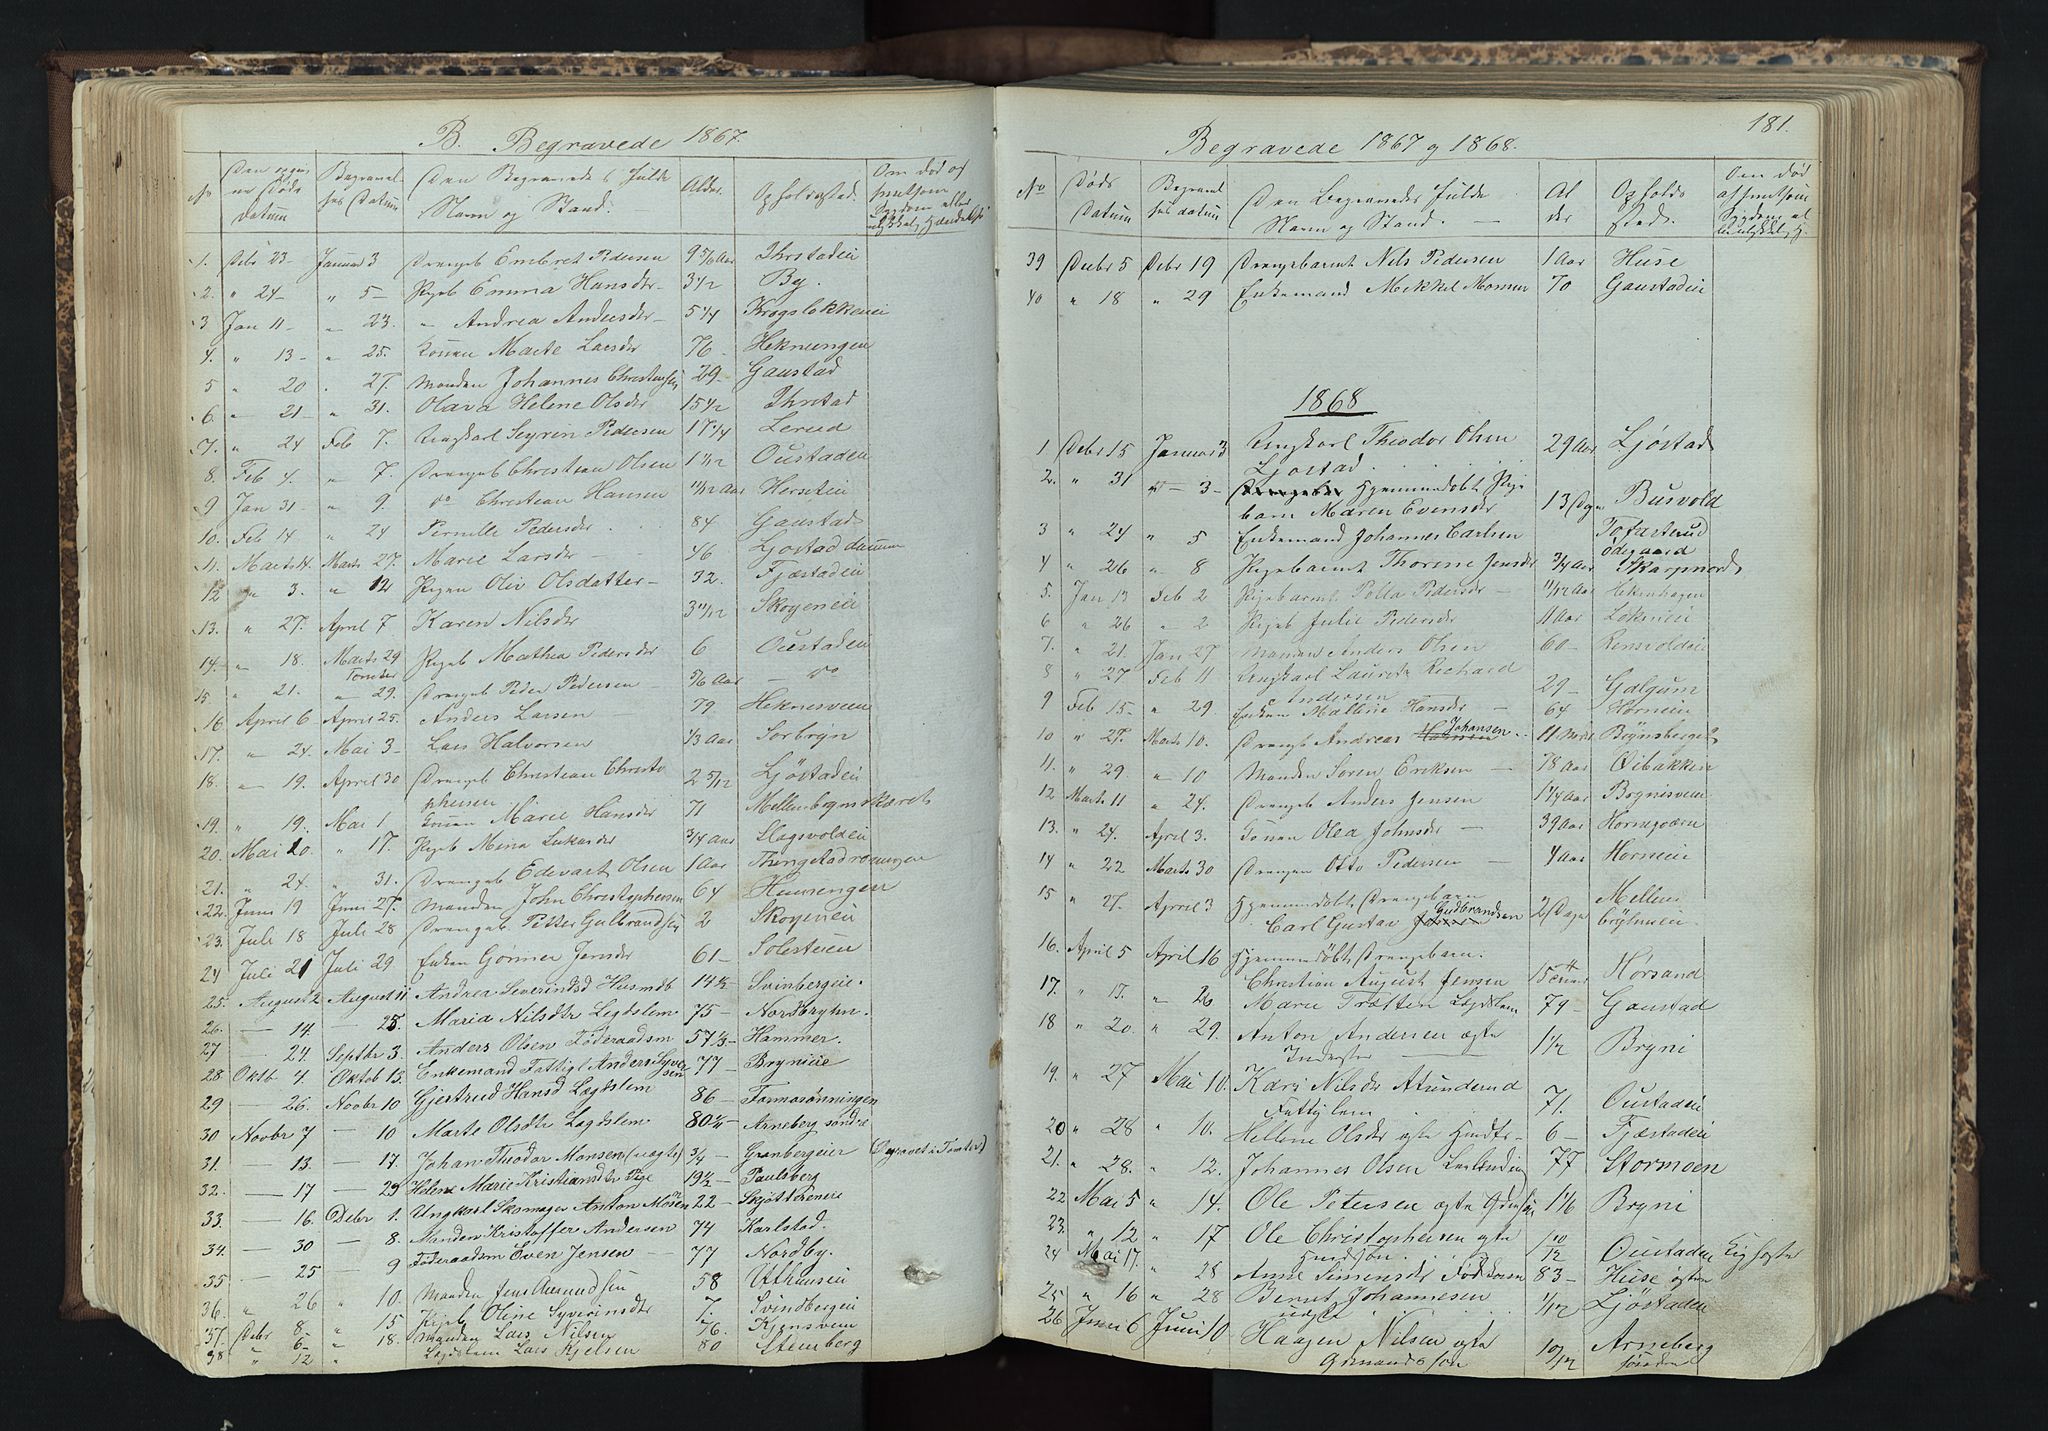 B. Begravede 1867.
No Døds Datum Begravelses Datum Den Begravedes fulde Navn og Stand. Alder. Opholdssted.
1. Debr 23 Januar 3 Drengeb Embret Pedersen 9 5/6 Aar Ihrstadeie
2. " 24 " 5 Pigeb Emma Hansdr 3 1/2 By.
3 Jan 11 " 23. " Andrea Andersdr 5 1/4 Krogsløkkeneie
4. " 13 " 25. Konen Marte Larsdr 76 Hekneengen
5 " 20 . 27. Manden Johannes Christensen 29 Gaustad
6. " 21 " 31. Olava Helene Olsdr 15 1/2 Ihrstad
7. " 24 Feb 7. Ungkarl Seyrin Pedersen 17 1/4 Lerud
8. Feb 4. " 7. Drengeb Christian Olsen 1 1/12 Oustadeie
9 Jan 31 " 9. do Christian Hansen 11/12 Aar Herseteie
10. Feb 14 " 24 Pernille Pedersdr 84 Gaustad
11. Marts 14. Marts 27. Marie Larsdr 46 Ljøstad
12 " 3. " 12 Pigen Oliv Olsdatter 32. Fjæstadeie
13. " 27. April 7 Karen Nilsdr 3 11/12 Skogeneie
14. " 18. Marts 29 Pigeb Mathea Pedersdr 6 Oustadeie
15. " 21. " 29. Drengeb Peder Pedersen 5/6 Aar do
16 April 6 April 25. Anders Larsen 79 Heknesveen
17. " 24. Mai 3 Lars Halvorsen 1/3 Aar Sørbryn
18. " 19. April 30 Drengeb Christian Christo 2 5/12 Ljøstadeie
phersen
19. " 19. Mai 1 Konen Marie Hansdr 71 Mellembrynskæret
20. Mai 10. " 17. Pigeb Mina Lukasdr 3/4 Aar Slagsvoldeie
21. " 24. " 31. Drengeb Edevart Olsen 1 Aar Thingstadrønningen
22. Juni 19 Juni 27. Manden John Christophersen 64
23. Juli 18 Juli 28 Drengeb Petter Gulbrandsen 2 Skogeneie
24 Juli 21 Juli 29 Enken Gønner Jensdr 61 Solesteeie
25. August 2 August 11 Andrea Severinsd Husmdt 14 1/2 Svinbergeie.
26. 14. 25. Maria Nilsdtr Legdslem 75 Nordbryhn.
27 24. Septbr 3. Anders Olsen Føderaadsm 57 1/3 Hammer.
28 Oktb 4. Oktob 13. Enkemand Fattigl Anders Syver 77 Brynieie
sen
29 26. Novbr 10 Gjertrud Hansd Lægdslem 86
30 Novbr 7 10 Marte Olsdtr Lægdslem 80 1/4 Arneberg søndre
31. 13. 17. Johan Theodor Monsen (uægte) 3/4 Granbergeier (Begravet i Tomter)
32. 17 29 Helene Marie Kristiansdtr Pige 19 1/2 Paulsberg
33. 16. Debr 1. Ungkarl Skomager Anton Mosen 22 Skjøttereneie
34. 30 8. Manden Kristoffer Andersen 74 Karlstad.
25 9 Føderaadsm Even Jensen 77 Nordby.
35 26 " 10. Manden Jens Amundsen 58 Uthuseeie
36. " 8 " 15 Pigeb Oline Syverinsdtr 7. Svindbergeie
37. Debr 6 " 18. Manden Lars Nilsen 76. Kjensveen
38 " 12 " Lægdslem Lars Kjelsen 80 Stenberg
181.
Begravede 1867 og 1868.
No Døds Datum Begravelses datum Den Begravedes fulde Navn og Stand. Alder Opholds Sted.
39 Decbr 5 Debr 19 Drengebarnet Nils Pedersen 1 Aar Huse
40 " 18 " 29 Enkemand Mekkel Monsen 70 Gaustadeie
1868
1 Debr 15 Januar 3 Ungkarl Theodor Olsen 29 Aar Ljøstad
Ljøstad.
2. " 31 " 3 Hjemmedøbt Pige
barn Maren Evensdr 13 Dage Busvold
3 " 24 " 5 Enkemand Johannes Carlsen Tofasterud
Ødegaard
4 " 26 " 8 Pigebarnet Thorine Jensdr 3/4 Aar Skarpnord
5. Jan 13 Feb 2 Pigebarnet Petta Pedersdr 11/12 Aar Heknehagen
6 " 26 " 2 Pigeb Julie Pedersdr 11 Aar Løkeneie
7. " 21. Jan 27 Manden Anders Olsen 60 Rensvoldeie
8 " 27 Feb 11 Ungkarl Laurits Richard
Andersen 29 Galgum
9 Feb 15 " 29. Enken Mallene Hansdr 64 Horneeie
10 " 27. Marts 10. Drengb Andreas Johansen 11 Brynsberget
11. " 29. " 10 Manden Søren Eriksen 78 Aar Øibakken
12 Marts 11 " 24. Drengeb Anders Jensen 1 1/4 Aar Brynisveen
13. " 24. April 3. Konen Olea Johnsdr 39 Aar Horngværn
14 " 22 Marts 30 Drengen Otto Pedersen 4 Aar Horneeie
15 " 27. April 3 Hjemmedøbt Drengebarn Mellem
Carl Gustav Gudbrandsen 2 Dage brÿhneie
16. April 5 April 16 Hjemmedøbt Drengebarn.
Christian August Jensen 15 Hørsand
17. " 17. " 26 Marie Træften Lægdslem 74 Gaustad
18 " 20. " 29. Anton Andersen ægte 1 1/2 Bryni
Inderster
19. " 27 Mai 10. Kari Nilsdr Akunderud
Fattiglem 71. Oustadeie
20 " 28 " 10. Hellene Olsdr ægte 6 Fjæstadeie
21. " 28. " 12. Johannes Olsen 77 Stormoen
22 Mai 5 " 14. Ole Petersen ægte 1 1/6 Bryni
23. " 12 " 17 Ole Christophersen ægte 10/12 Oustaden
24 Mai 17. " 28 Anne Simensdr 83 Huse østre
25 " 16 " 28 Bernt Johannesen 1/12 Ljøstadeie
uægte
26 Juni 6 Juni 10 Haagen Nilsen ægte 10/12 Arneberg
søndre